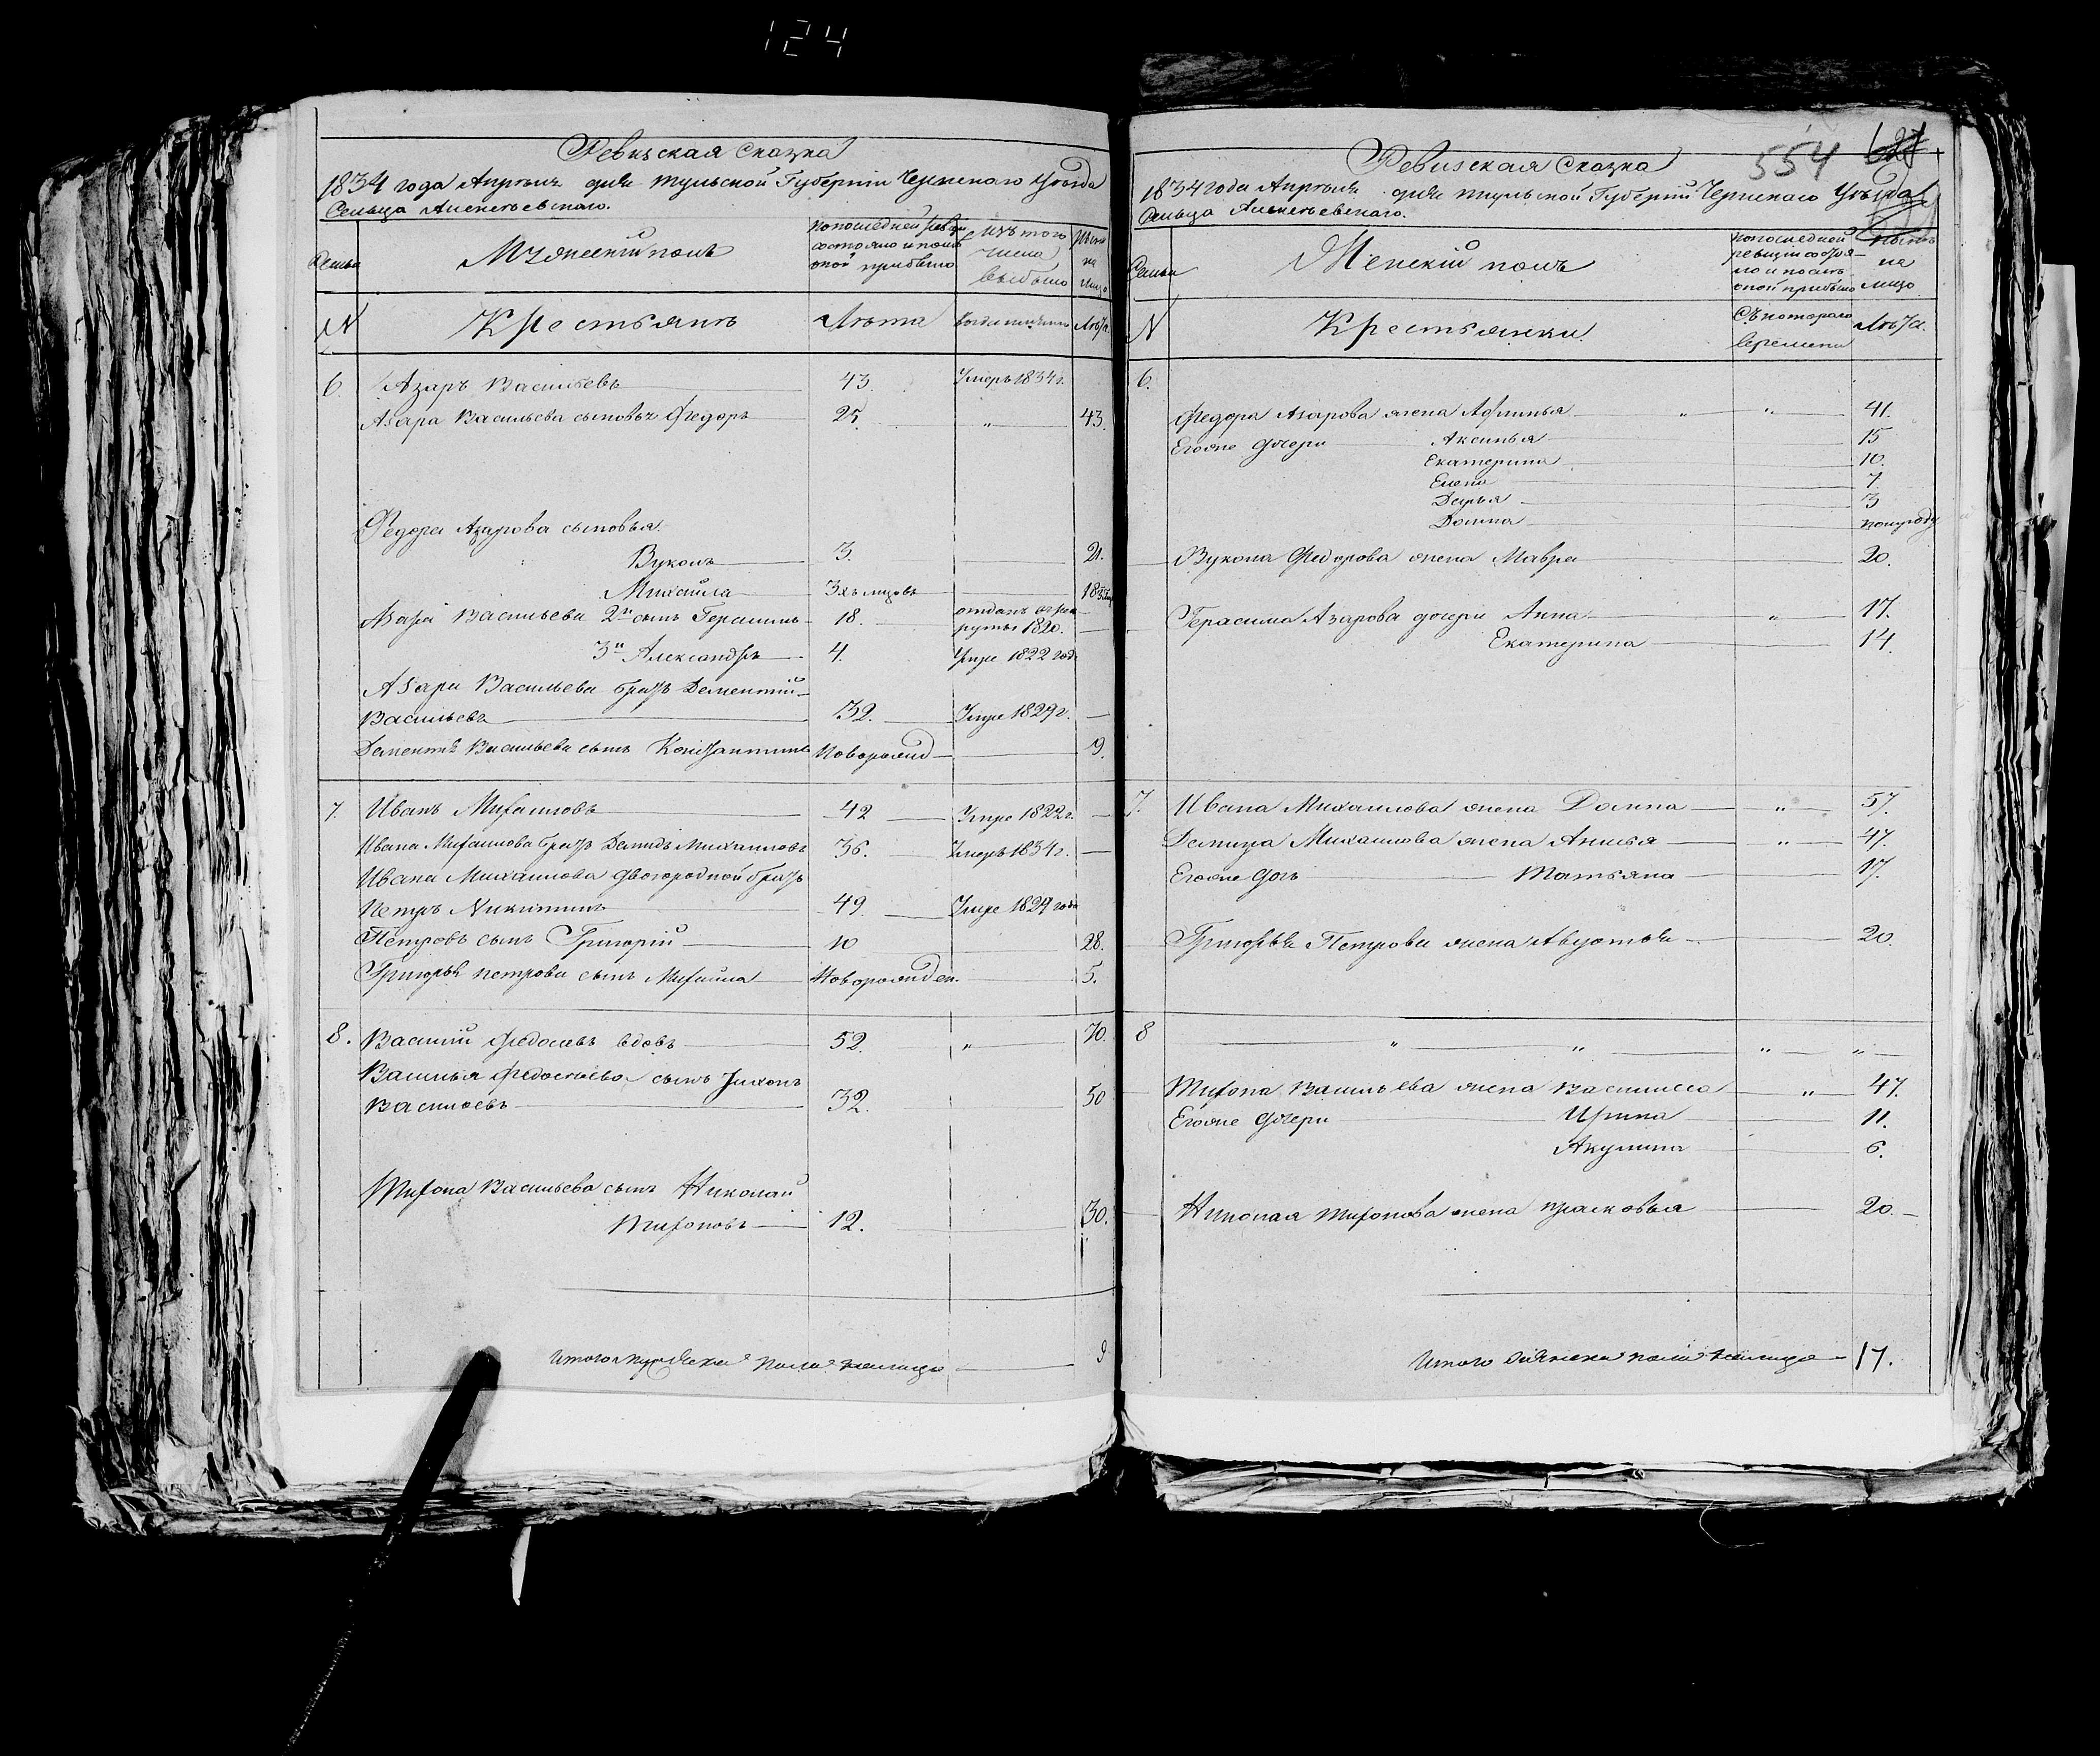 124
Ревизская Сказка
1834 года Апреля дня Тульской Губернии Чернскаго Уезда
Сельца Алексеевскаго.
Семьи
Мужеский полъ
по последней ревизіи состояло и после оной прибыло
Изъ того числа выбыло
Ныне на лицо
№
Крестьянъ
Лета
Когда именно
Лета
6. Азаръ Васильевъ 43 Умеръ 1834 г.
Азара Васильева сыновья Федоръ 25. " 43.
Федора Азарова сыновья
Вуколъ 3. 21.
Михайла 3хъ месцовъ
Азара Васильева 2й сынъ Герасимъ 18. отданъ в рекруты 1820.
3й Александръ 4. Умре 1822 года
Азара Васильева братъ Дементій
Васильевъ 32. Умре 1829 г.
Дементія Васильева сынъ Константинъ Новорожд 9.
7. Иванъ Михаиловъ 42 Умре 1822 г.
Ивана Михаилова братъ Демидъ Михаиловъ 36. Умеръ 1834 г.
Ивана Михаилова двоюродной братъ
Петръ Никитинъ 49. Умре 1829 года
Петровъ сынъ Григорій 10 28.
Григорья петрова сынъ Михайла Новорожден. 5.
8. Василій Федосеевъ вдовъ 52. " 70.
Василья Федосеева сынъ Тихонъ
Васильевъ 32. 50
Тихона Васильева сынъ Николай
Тихоновъ 12. 30.
Итого мужеска пола налицо 9
Ревизская Сказка
554
1834 года Апреля дня Тульской Губерній Чернскаго Уезда
Сельца Алексеевскаго.
Семьи
Женскій полъ
по последней ревизіи состояло и после оной прибыло
Ныне на лицо
№
Крестьянки
Съ котораго времени
Лета.
6.
Федора Азарова жена Афимья " " 41.
Егоже дочери Аксинья 15
Екатерина 10.
Елена 7.
Дарья 3
Домна полугоду
Вукола Федорова жена Мавра 20.
Герасима Азарова дочери Анна " 17.
Екатерина 14.
7. Ивана Михаилова жена Домна " 57.
Демида Михаилова жена Анисья " 47.
Егоже дочь Татьяна 17.
Григорья Петрова жена Авдотья 20.
8 " " " "
Тихона Васильева жена Василисса " 47.
Егоже дочери Ирина 11.
Акулина 6.
Николая Тихонова жена прасковья 20.
Итого женска пола налицо 17.